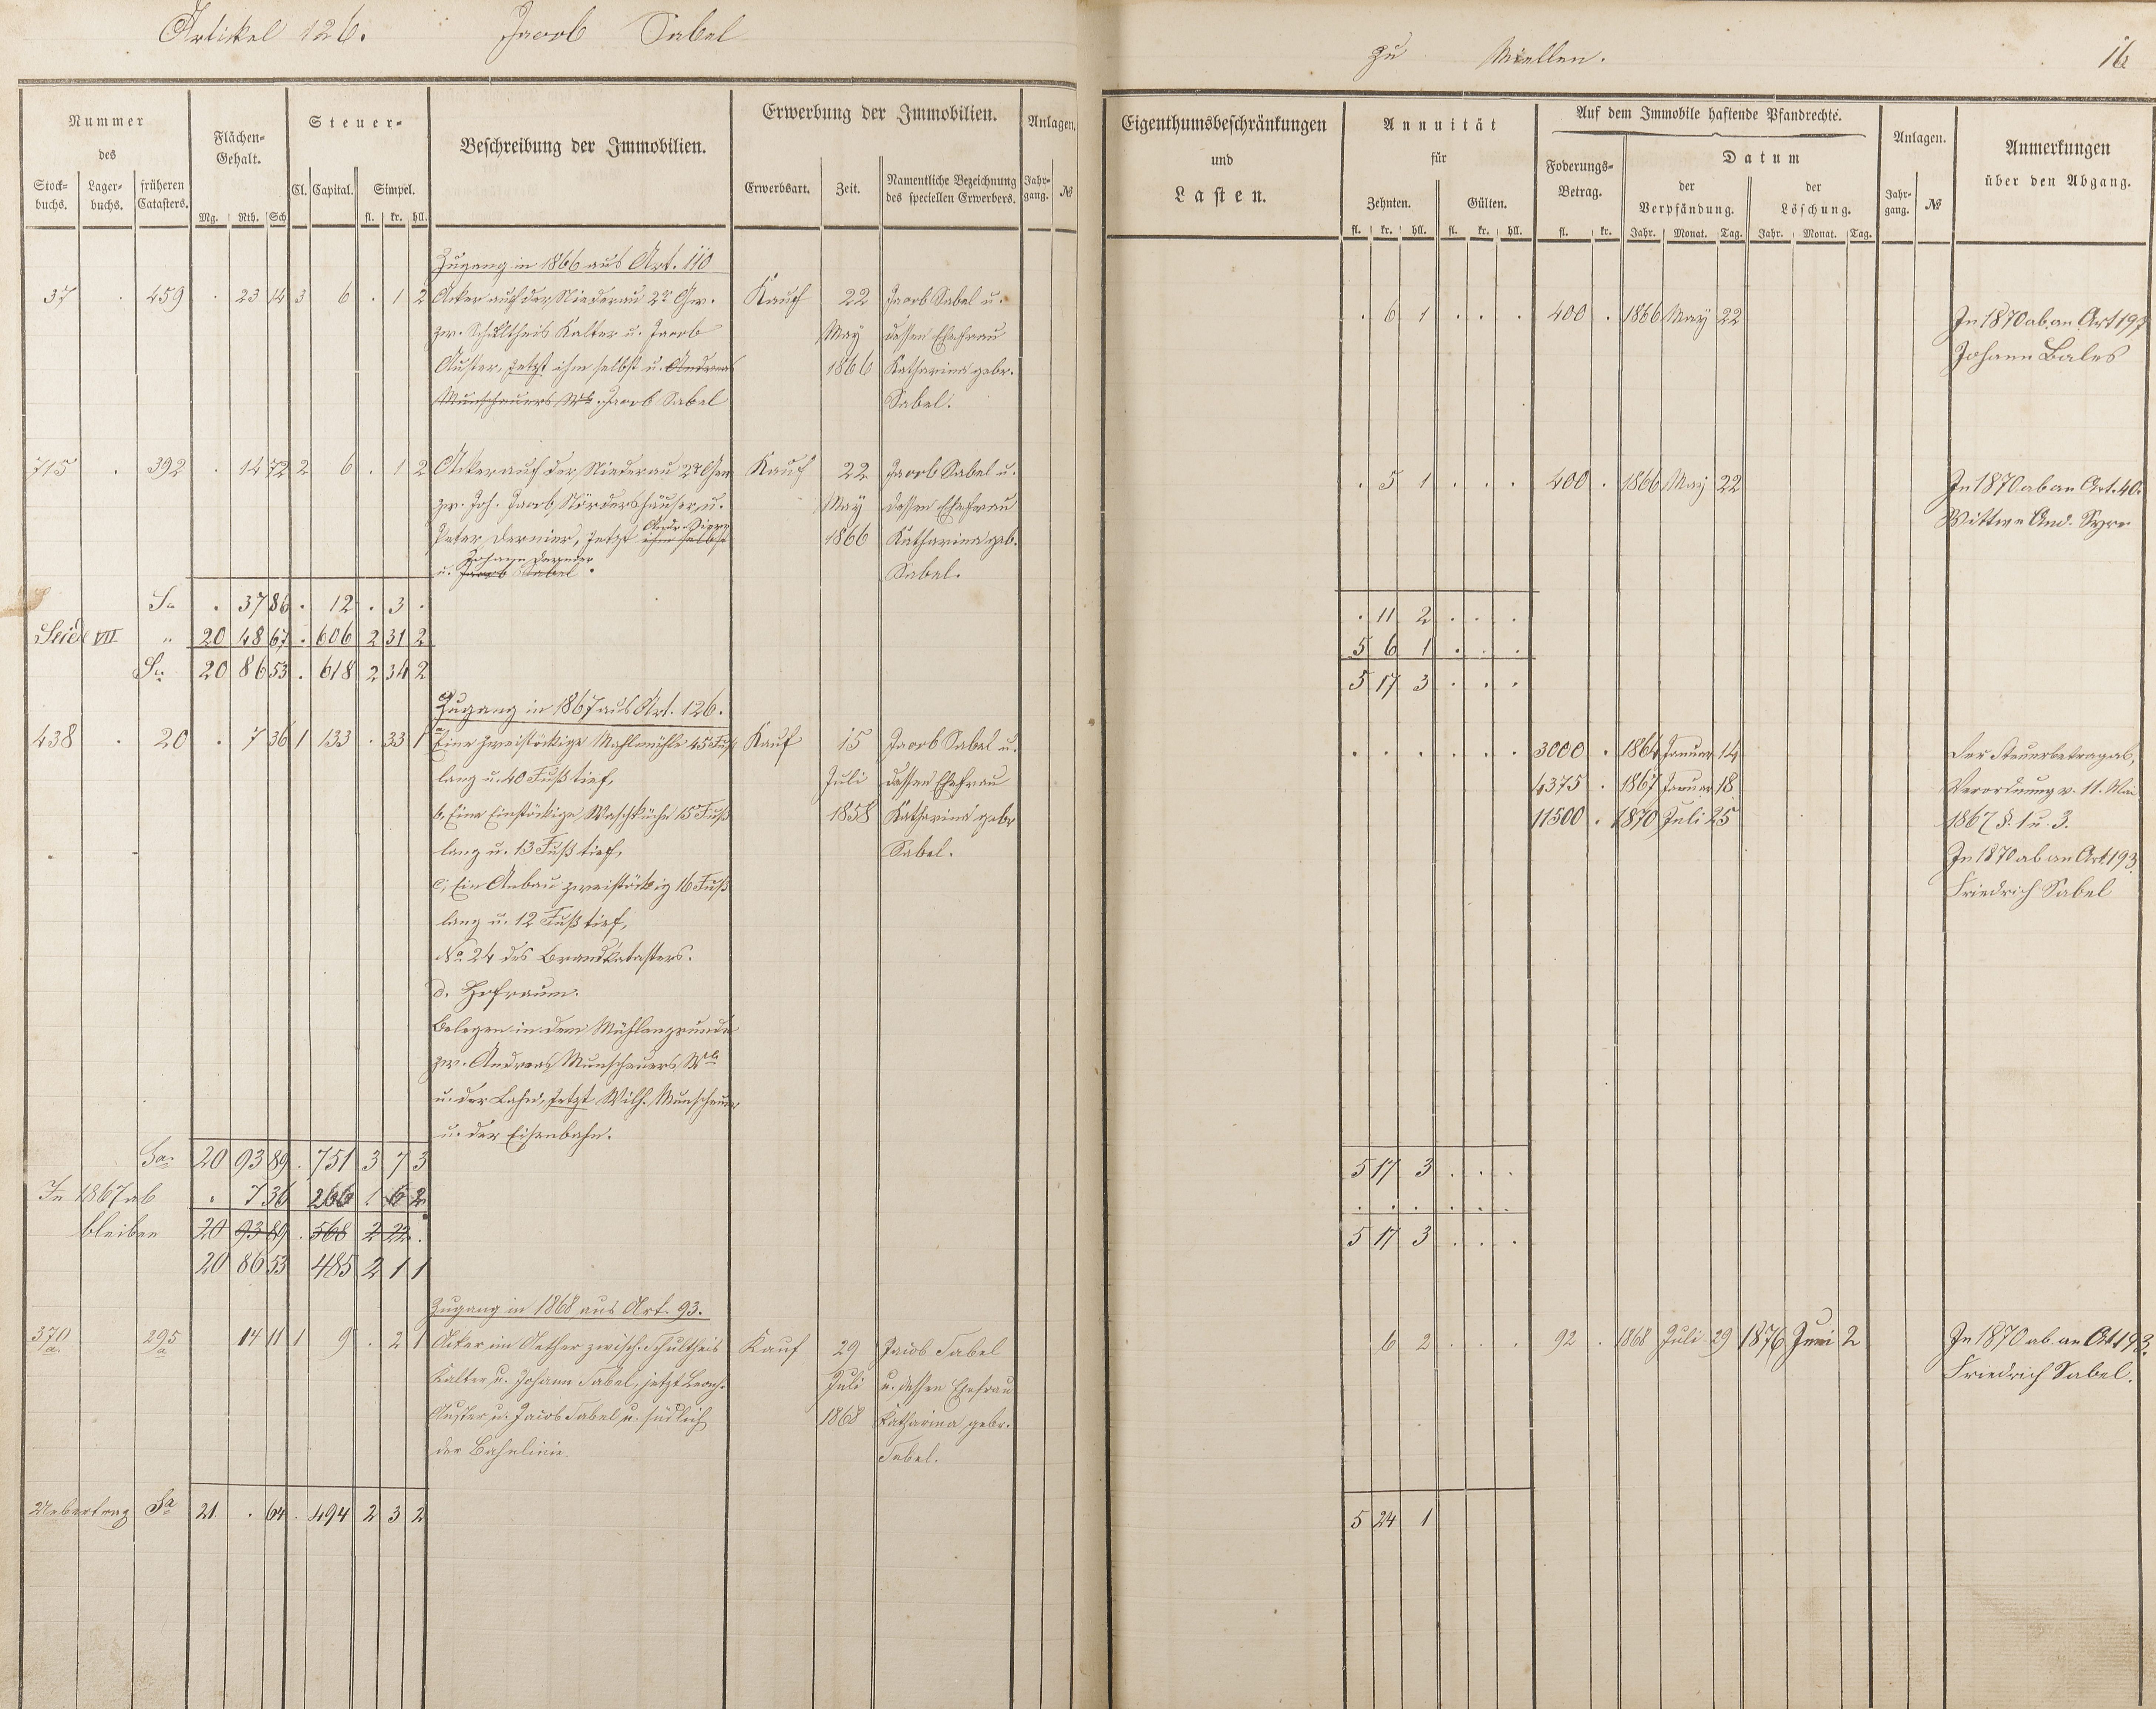 Artikel 126. Jacob Sabel
zu Miellen. 16
Nummer des
Stock-buchs. Lager-buchs. früheren Catasters.
Flächen-Gehalt.
Mg. Rth. Sch
Steuer-
Cl. Capital. Simpel.
fl. kr. hll.
Beschreibung der Immobilien.
Erwerbung der Immobilien.
Erwerbsart. Zeit. Namentliche Bezeichnung des speciellen Erwerbers.
Anlagen.
Jahr-gang. №
Eigenthumsbeschränkungen
und
Lasten.
Annuität
für
Zehnten. Gülten.
fl. kr. hll. fl. kr. hll.
Auf dem Immobile haftende Pfandrechte.
Foderungs-Betrag.
fl. kr.
Datum
der Verpfändung. der Löschung.
Jahr. Monat. Tag. Jahr. Monat. Tag.
Anlagen.
Jahr-gang. №
Anmerkungen
über den Abgang.
Zugang in 1866 aus Art. 110
37 . 459 . 23 14 3 6 . 1 2 Acker auf der Niederau 2r Gw. Kauf 22 Jacob Sabel u. . 6 1 . . . 400 . 1866 May 22 In 1870 ab an Art 197
zw. Schultheis Kalter u. Jacob May dessen Ehefrau Johann Bales
Auster, jetzt ihm selbst u. Andreas 1866 Katharina gebr.
Munschauers Wb. Jacob Sabel Sabel.
715 . 392 . 14 72 2 6 . 1 2 Acker auf der Niederau 2r Gew Kauf 22 Jacob Sabel u. . 5 1 . . . 400 . 1866 May 22 In 1870 ab an Art. 40.
zw. Joh. Jacob Nördershäuser u. May dessen Ehefrau Wittwe And.
Andr.
Peter Dernier, Jetzt ihm selbst 1866 Katharina geb.
Johann Dernier
u. Jacob Sabel. Sabel.
Sa . 37 86 . 12 . 3 . . 11 2 . . .
Seite VII " 20 48 67 . 606 2 31 2 5 6 1 . . .
Sa. 20 86 53 . 618 2 34 2 5 17 3 . . .
Zugang in 1867 aus Art. 126.
438 . 20 . 7 36 1 133 . 33 1 a Eine zweistöckige Mahlmühle 45 Fuß Kauf 15 Jacob Sabel u. . . . . . . 3000 . 1864 Januar 14 Der Steuerbetrag ab,
lang u. 40 Fuß tief, Juli dessen Ehefrau 4375 . 1867 Januar 18 Verordnung v. 11. Mai
b, Eine Einstöckige Waschküche 15 Fuß 1858 Katharina gebr 11500 . 1870 Juli 25 1867 §. 1 u. 3.
lang u. 13 Fuß tief, Sabel. In 1870 ab an Art. 193
c, Ein Anbau zweistöckig 16 Fuß Friedrich Sabel
lang u. 12 Fuß tief,
No 24 des Brandkatasters.
d. Hofraum.
Belegen in dem Mühlengrunde
zw. Andreas Munschauers Wb
u. der Lahn, jetzt Wilh. Munschauer
u. der Eisenbahn.
Sa. 20 93 89 . 751 3 7 3 5 17 3 . . .
In 1867 ab . 7 36 266 1 6 2 . . . . . .
bleiben 20 93 89 . 568 2 22 . 5 17 3 . . .
20 86 53 485 2 1 1
Zugang in 1868 aus Art. 93.
370/a. 295/a 14 11 1 9 . 2 1 Acker im Aether zwisch. Schultheis Kauf 29 Jacob Sabel 6 2 . . . 92 . 1868 Juli 29 1876 Juni 2 In 1870 ab an Art 193.
Kalter u. Johann Sabel, jetzt Leonh. Juli u. dessen Ehefrau Friedrich Sabel.
Auster u. Jacob Sabel u. südlich 1868 Katharina gebr.
der Bahnlinie. Sabel.
Uebertrag Sa 21 . 64 . 494 2 3 2 5 24 1